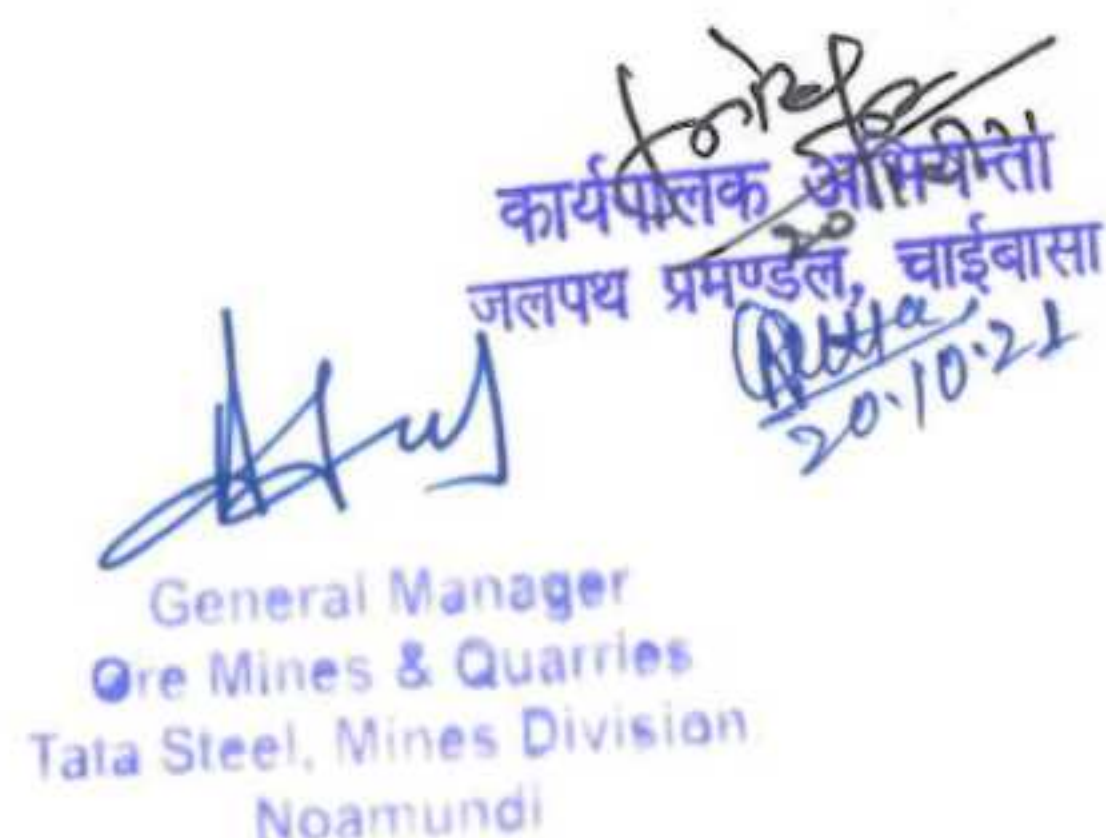 कार्यपालक अभियन्ता
जलपथ प्रमण्डल, चाईबासा
20.10.21
General Manager
Ore Mines & Quarries
Tata Steel, Mines Division
Noamundi